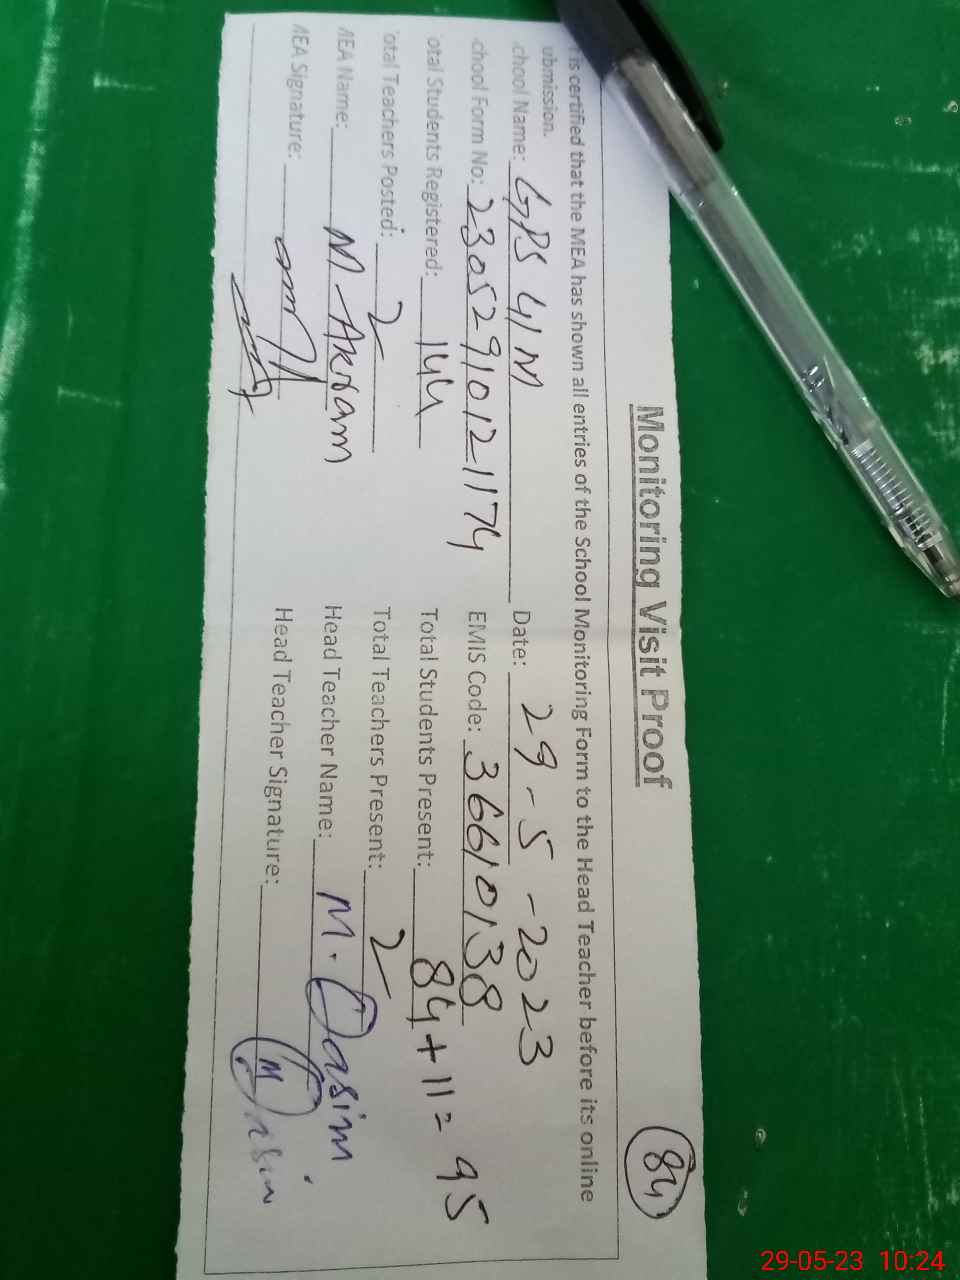 Monitoring Visit Proof
84
is certified that the MEA has shown all entries of the School Monitoring Form to the Head Teacher before its online
ubmission.
chool Name: GPS 41 M Date: 29-5-2023
chool Form No: 2305291012 1174 EMIS Code: 36610138
otal Students Registered: 144 Total Students Present: 84+11=95
otal Teachers Posted: 2 Total Teachers Present: 2
MEA Name: M Akram Head Teacher Name: M. Qasim
MEA Signature: Head Teacher Signature: M Qasim
29-05-23 10:24